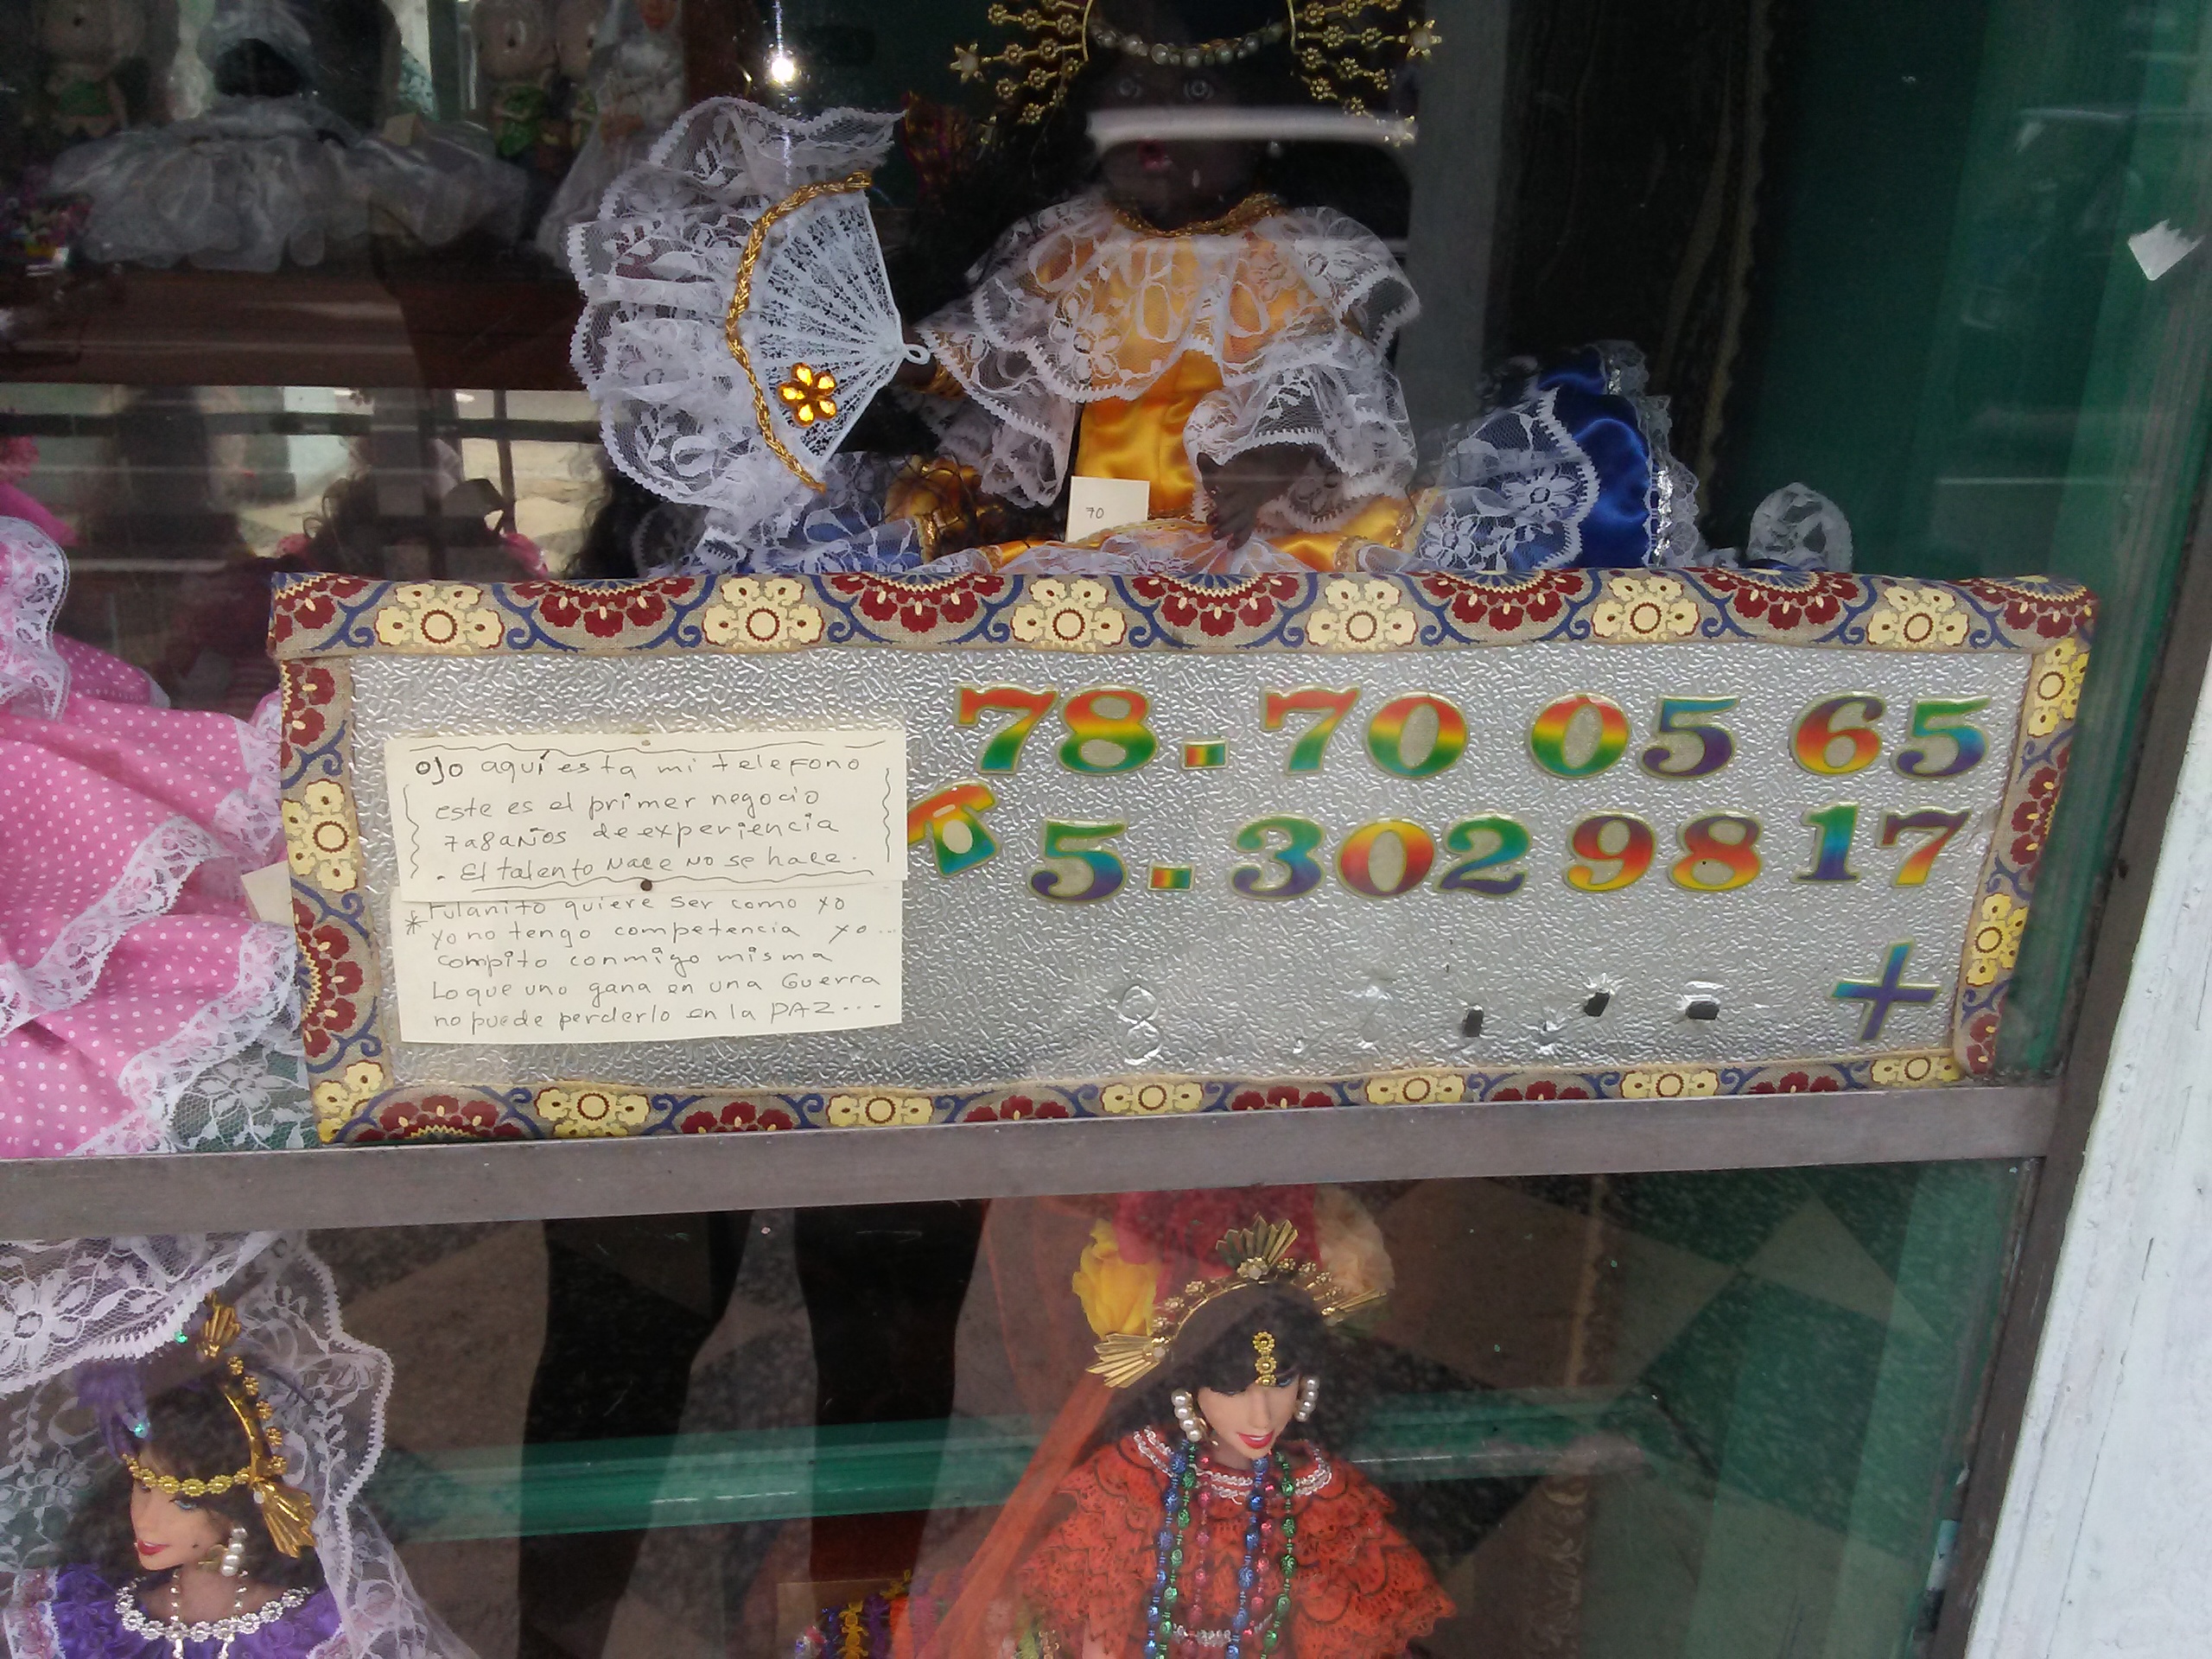 70
78-70 05 65
5-302 98 17
+
8
ojo aquí esta mi telefono
este es el primer negocio
7a8años de experiencia
. El talento Nace No se hace.
*Fulanito quiere ser como yo
yo no tengo competencia yo...
compito conmigo misma
Lo que uno gana en una Guerra
no puede perderlo en la PAZ...